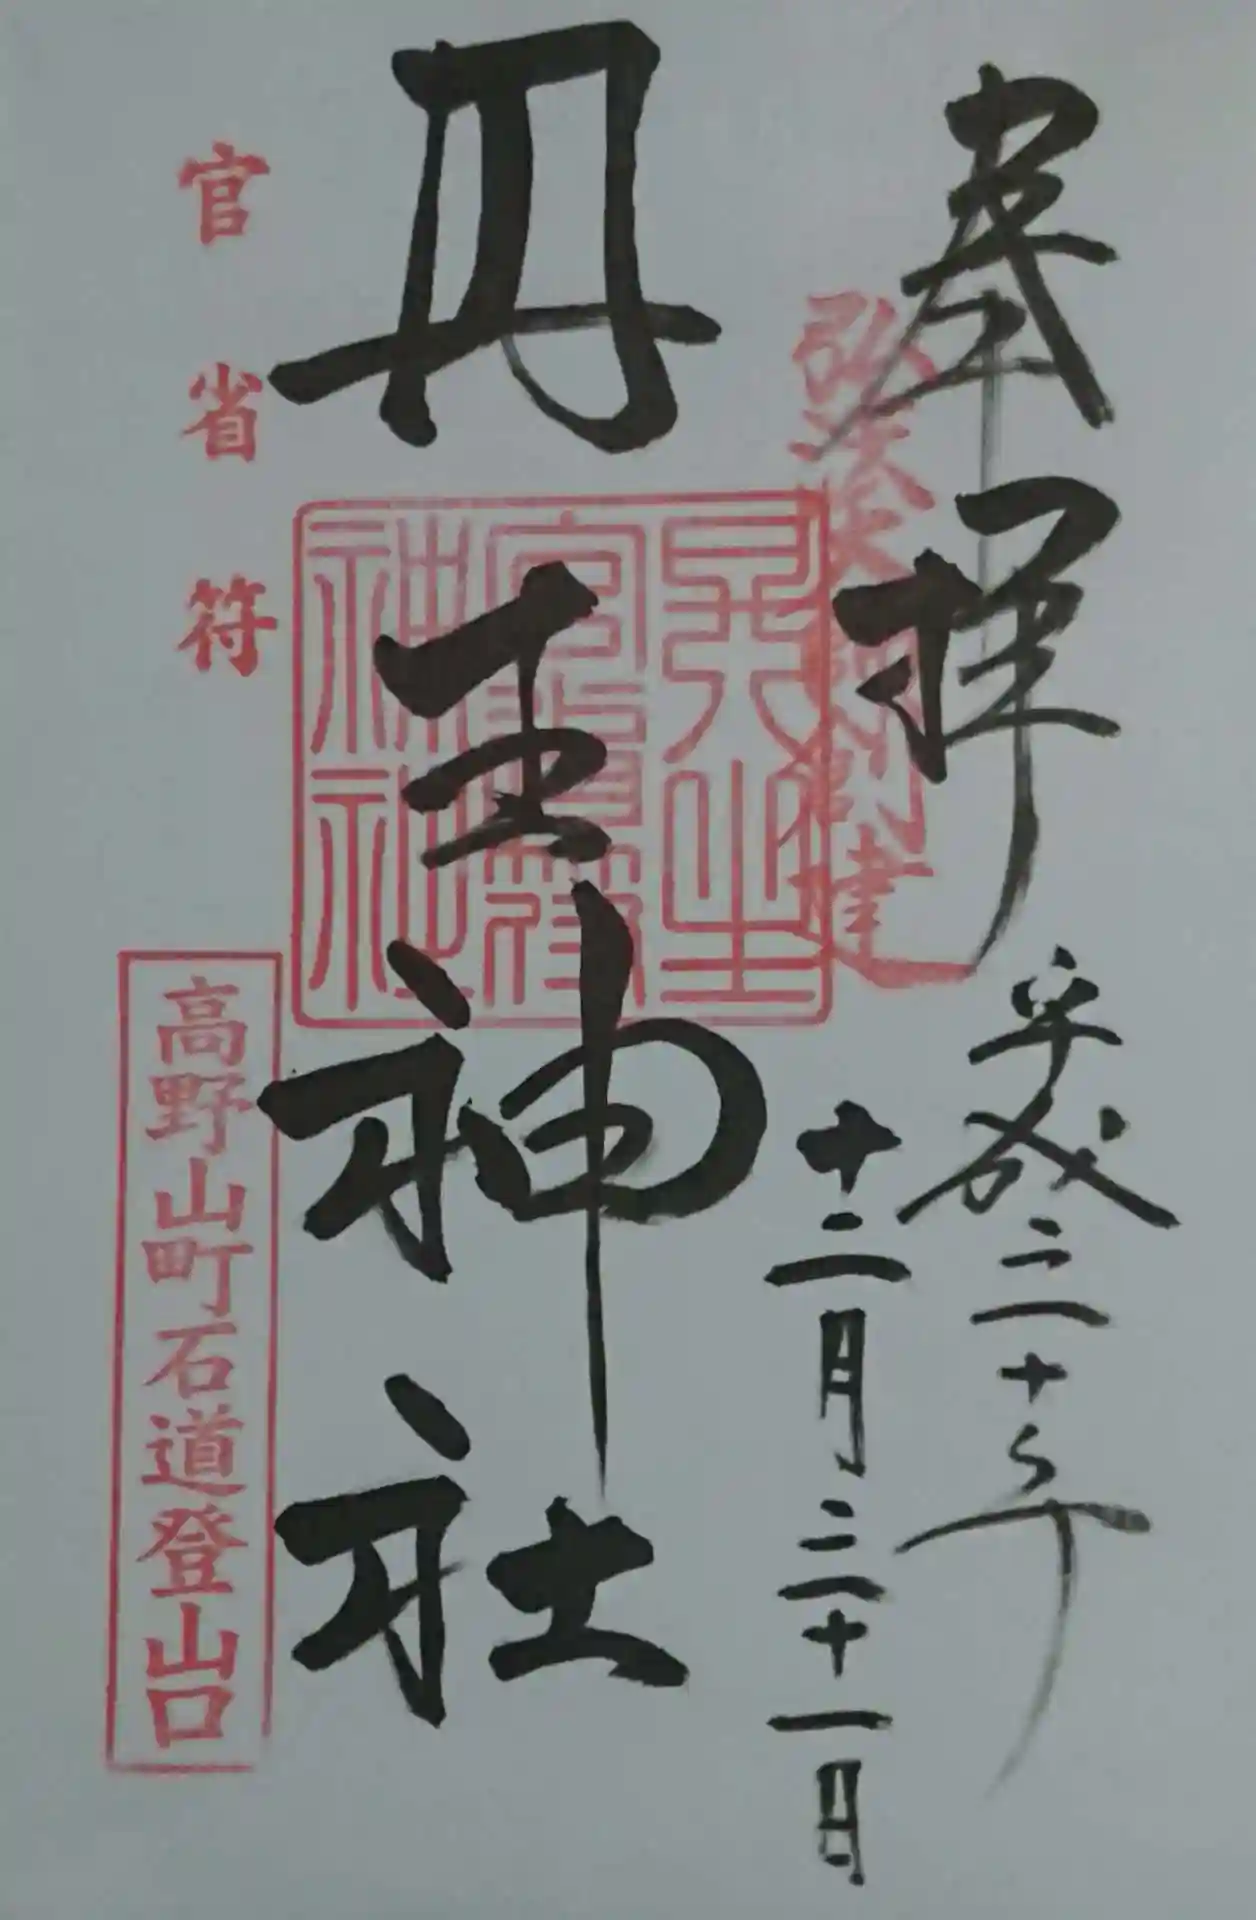 奉拝
弘法大師創建
平成三十年
十二月三十一日
丹生神社
丹生
官省符
神社
官省符
高野山町石道登山口